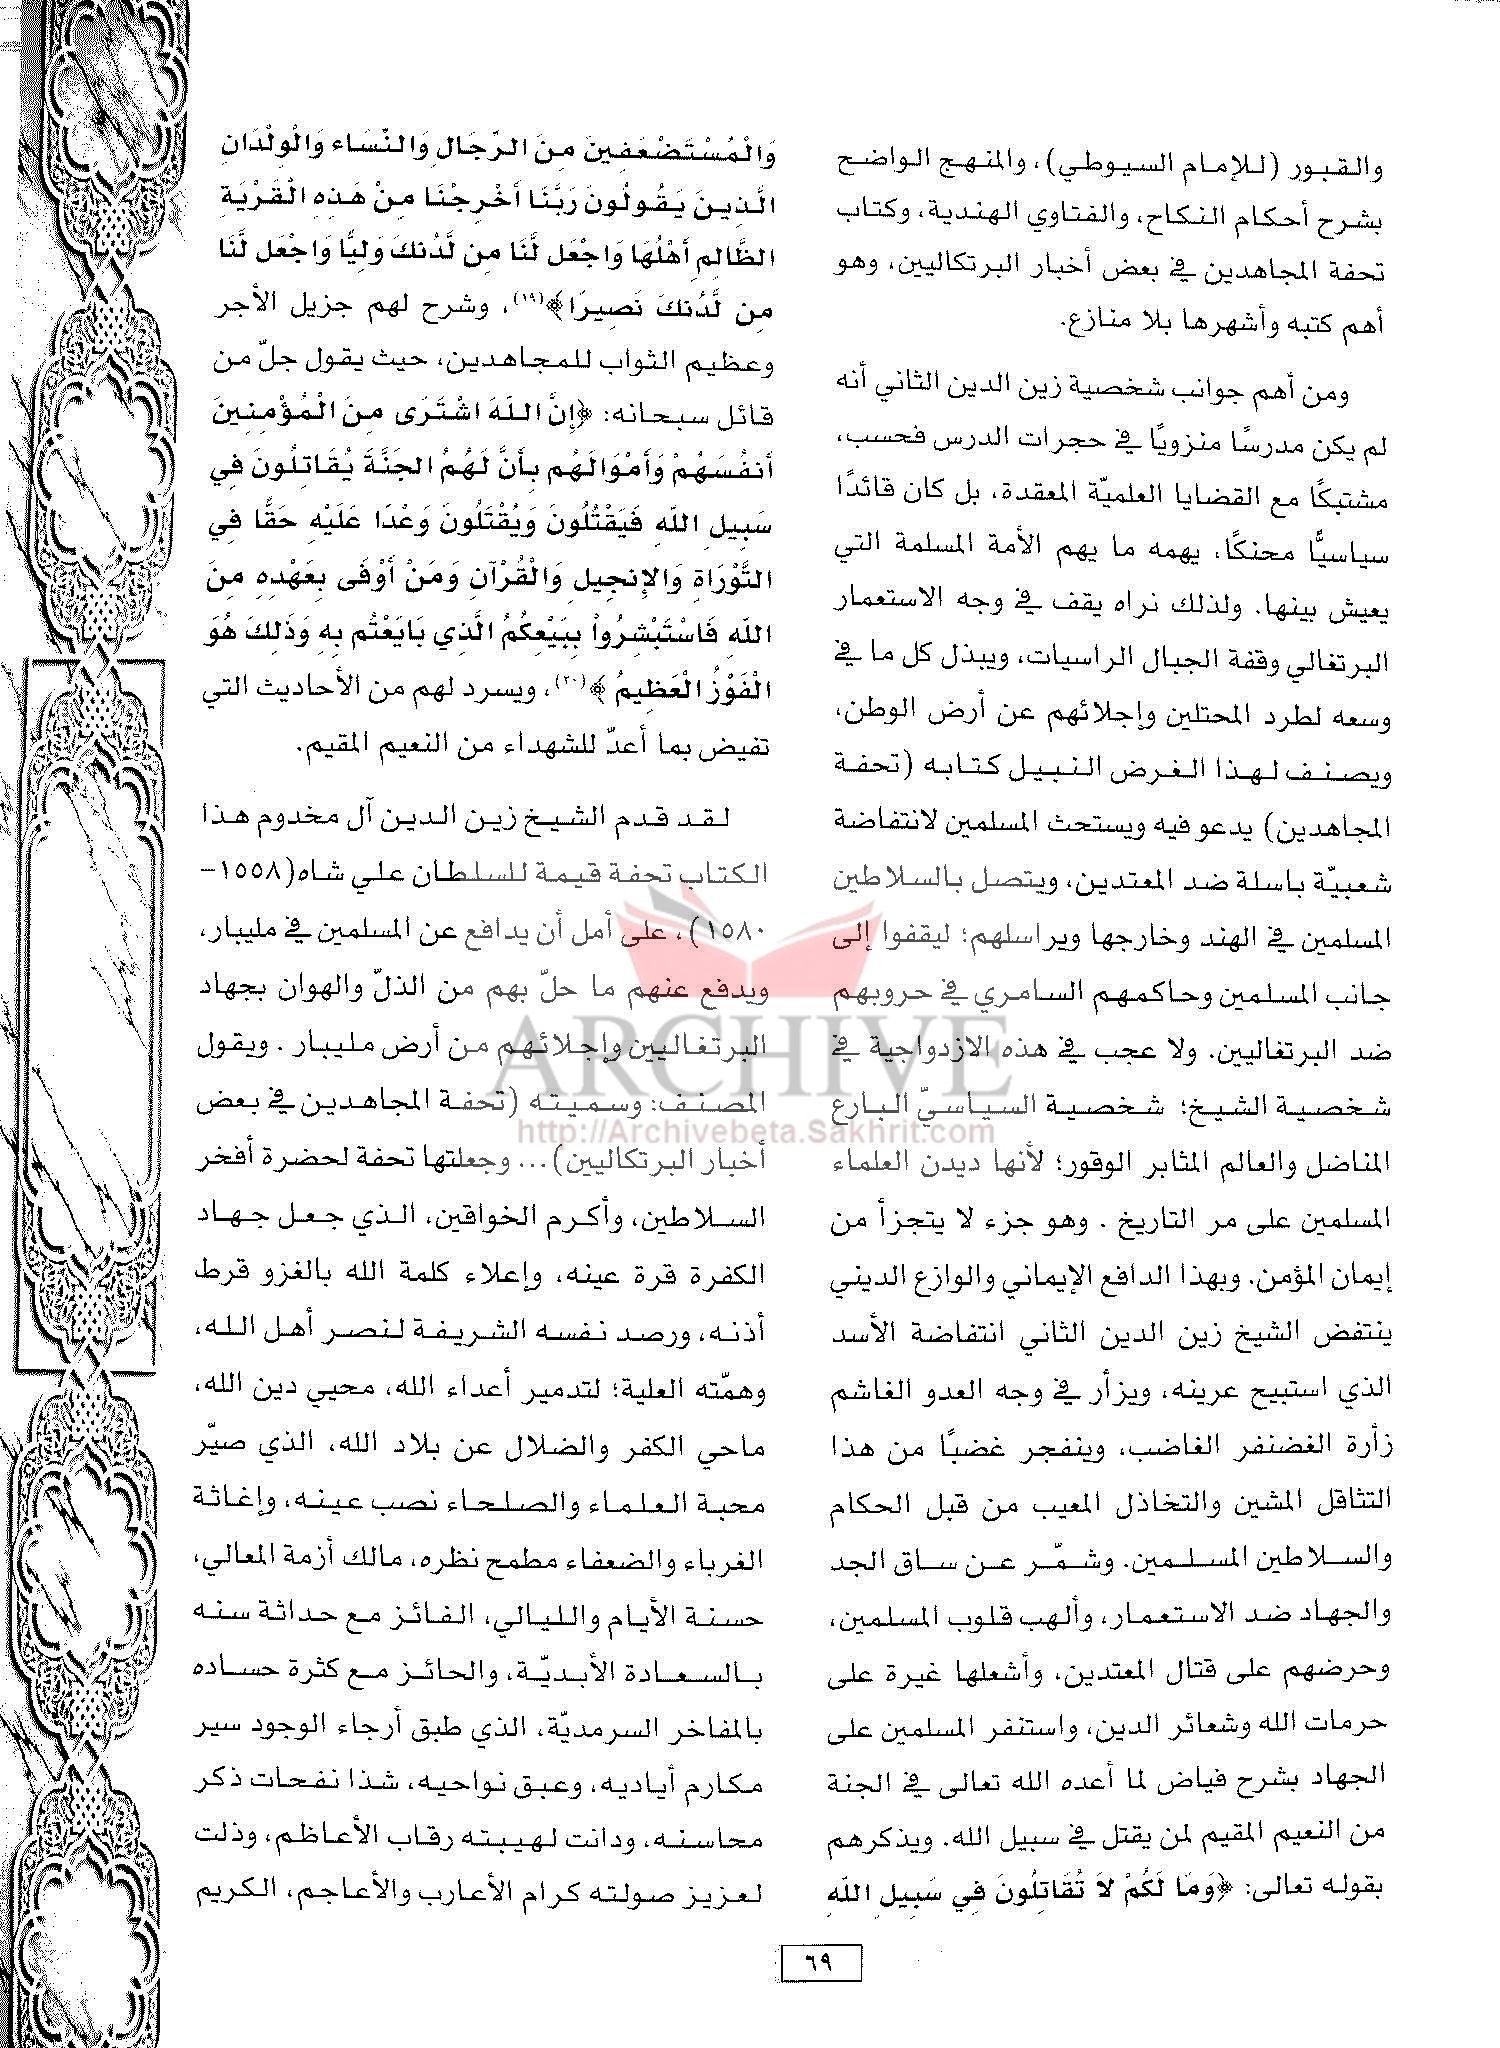 والقبور (للإمام السيوطي)، والمنهج الواضح
بشرح أحكام النكاح، والفتاوي الهندية، وكتاب
تحفة المجاهدين في بعض أخبار البرتكاليين، وهو
أهم كتبه وأشهرها بلا منازع.
ومن أهم جوانب شخصية زين الدين الثاني أنه
لم يكن مدرسًا منزويًا في حجرات الدرس فحسب،
مشتبكًا مع القضايا العلميّة المعقدة، بل كان قائدًا
سياسيًّا محنكًا، يهمه ما يهم الأمة المسلمة التي
يعيش بينها. ولذلك نراه يقف في وجه الاستعمار
البرتغالي وقفة الجبال الراسيات، ويبذل كل ما في
وسعه لطرد المحتلين وإجلائهم عن أرض الوطن،
ويصنف لهذا الغرض النبيل كتابه (تحفة
المجاهدين) يدعو فيه ويستحث المسلمين لانتفاضة
شعبيّة باسلة ضد المعتدين، ويتصل بالسلاطين
المسلمين في الهند وخارجها ويراسلهم؛ ليقفوا إلى
جانب المسلمين وحاكمهم السامري في حروبهم
ضد البرتغاليين. ولا عجب في هذه الازدواجية في
شخصية الشيخ؛ شخصية السياسيّ البارع
المناضل والعالم المثابر الوقور؛ لأنها ديدن العلماء
المسلمين على مر التاريخ . وهو جزء لا يتجزأ من
إيمان المؤمن. وبهذا الدافع الإيماني والوازع الديني
ينتفض الشيخ زين الدين الثاني انتفاضة الأسد
الذي استبيح عرينه، ويزأر في وجه العدو الغاشم
زأرة الغضنفر الغاضب، وينفجر غضبًا من هذا
التثاقل المشين والتخاذل المعيب من قبل الحكام
والسلاطين المسلمين. وشمّر عن ساق الجد
والجهاد ضد الاستعمار، وألهب قلوب المسلمين،
وحرضهم على قتال المعتدين، وأشعلها غيرة على
حرمات الله وشعائر الدين، واستنفر المسلمين على
الجهاد بشرح فياض لما أعده الله تعالى في الجنة
من النعيم المقيم لمن يقتل في سبيل الله. ويذكرهم
بقوله تعالى: ﴿وَمَا لَكُمْ لاَ تُقَاتِلُونَ فِي سَبِيلِ اللّهِ
وَالْمُسْتَضْعَفِينَ مِنَ الرِّجَالِ وَالنِّسَاء وَالْوِلْدَانِ
الَّذِينَ يَقُولُونَ رَبَّنَا أَخْرِجْنَا مِنْ هَذِهِ الْقَرْيَةِ
الظَّالِمِ أَهْلُهَا وَاجْعَل لَّنَا مِن لَّدُنكَ وَلِيًّا وَاجْعَل لَّنَا
مِن لَّدُنكَ نَصِيرًا﴾(١٩)، وشرح لهم جزيل الأجر
وعظيم الثواب للمجاهدين، حيث يقول جلّ من
قائل سبحانه: ﴿إِنَّ اللّهَ اشْتَرَى مِنَ الْمُؤْمِنِينَ
أَنفُسَهُمْ وَأَمْوَالَهُم بِأَنَّ لَهُمُ الجَنَّةَ يُقَاتِلُونَ فِي
سَبِيلِ اللّهِ فَيَقْتُلُونَ وَيُقْتَلُونَ وَعْدًا عَلَيْهِ حَقًّا فِي
التَّوْرَاةِ وَالإِنجِيلِ وَالْقُرْآنِ وَمَنْ أَوْفَى بِعَهْدِهِ مِنَ
اللّهِ فَاسْتَبْشِرُواْ بِبَيْعِكُمُ الَّذِي بَايَعْتُم بِهِ وَذَلِكَ هُوَ
الْفَوْزُ الْعَظِيمُ﴾(٢٠)، ويسرد لهم من الأحاديث التي
تفيض بما أعدّ للشهداء من النعيم المقيم.
لقد قدم الشيخ زين الدين آل مخدوم هذا
الكتاب تحفة قيمة للسلطان علي شاه(١٥٥٨-
١٥٨٠)، على أمل أن يدافع عن المسلمين في مليبار،
ويدفع عنهم ما حلّ بهم من الذلّ والهوان بجهاد
البرتغاليين وإجلائهم من أرض مليبار . ويقول
المصنف: وسميته (تحفة المجاهدين في بعض
أخبار البرتكاليين)... وجعلتها تحفة لحضرة أفخر
السلاطين، وأكرم الخواقين، الذي جعل جهاد
الكفرة قرة عينه، وإعلاء كلمة الله بالغزو قرط
أذنه، ورصد نفسه الشريفة لنصر أهل الله،
وهمّته العلية؛ لتدمير أعداء الله، محيي دين الله،
ماحي الكفر والضلال عن بلاد الله، الذي صيّر
محبة العلماء والصلحاء نصب عينه، وإغاثة
الغرباء والضعفاء مطمح نظره، مالك أزمة المعالي،
حسنة الأيام والليالي، الفائز مع حداثة سنه
بالسعادة الأبديّة، والحائز مع كثرة حساده
بالمفاخر السرمديّة، الذي طبق أرجاء الوجود سير
مكارم أياديه، وعبق نواحيه، شذا نفحات ذكر
محاسنه، ودانت لهيبته رقاب الأعاظم، وذلت
لعزيز صولته كرام الأعارب والأعاجم، الكريم
ARCHIVE
http://Archivebeta.Sakhrit.com
٦٩